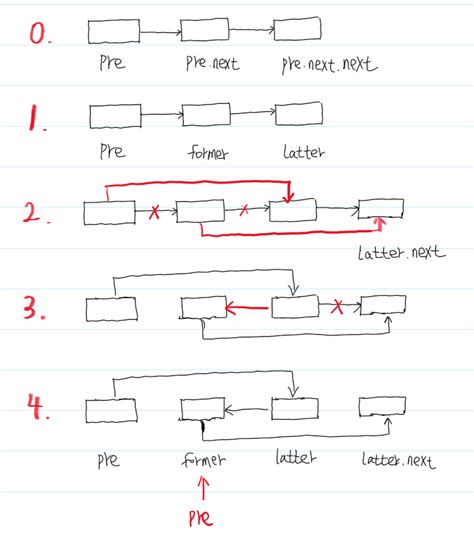 0.
pre pre.next pre.next.next
1.
pre former latter
2.
latter.next
3.
4.
pre former latter latter.next
pre